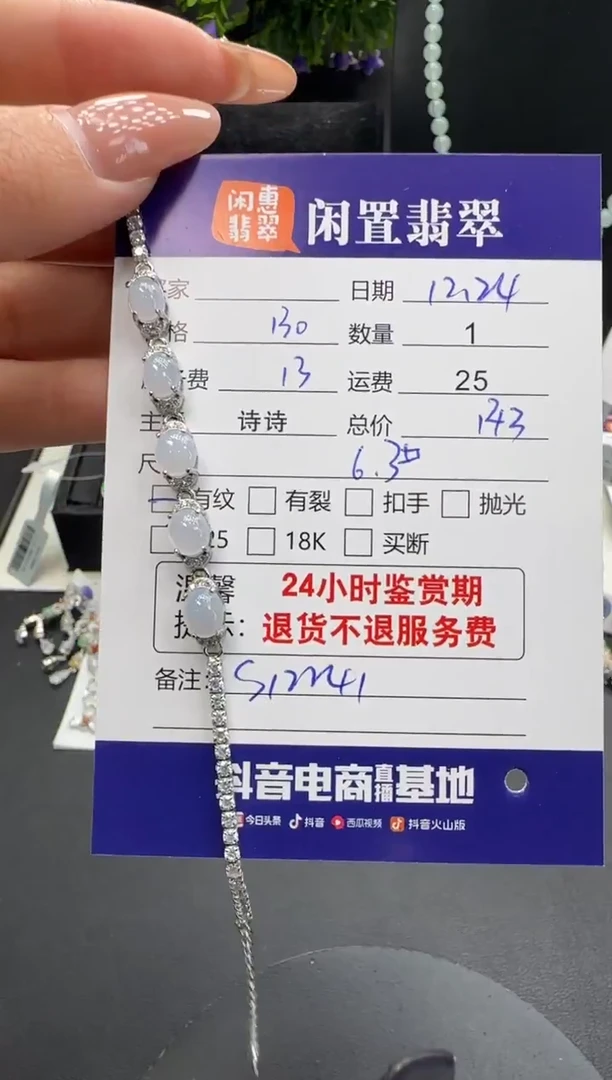 闲惠翡翠 闲置翡翠
家 日期 12.24
格 130 数量 1
费 13 运费 25
主 诗诗 总价 143
尺 6.3
有纹 有裂 扣手 抛光
25 18K 买断
温馨 24小时鉴赏期
提示: 退货不退服务费
备注:
抖音电商直播基地
今日头条 抖音 西瓜视频 抖音火山版